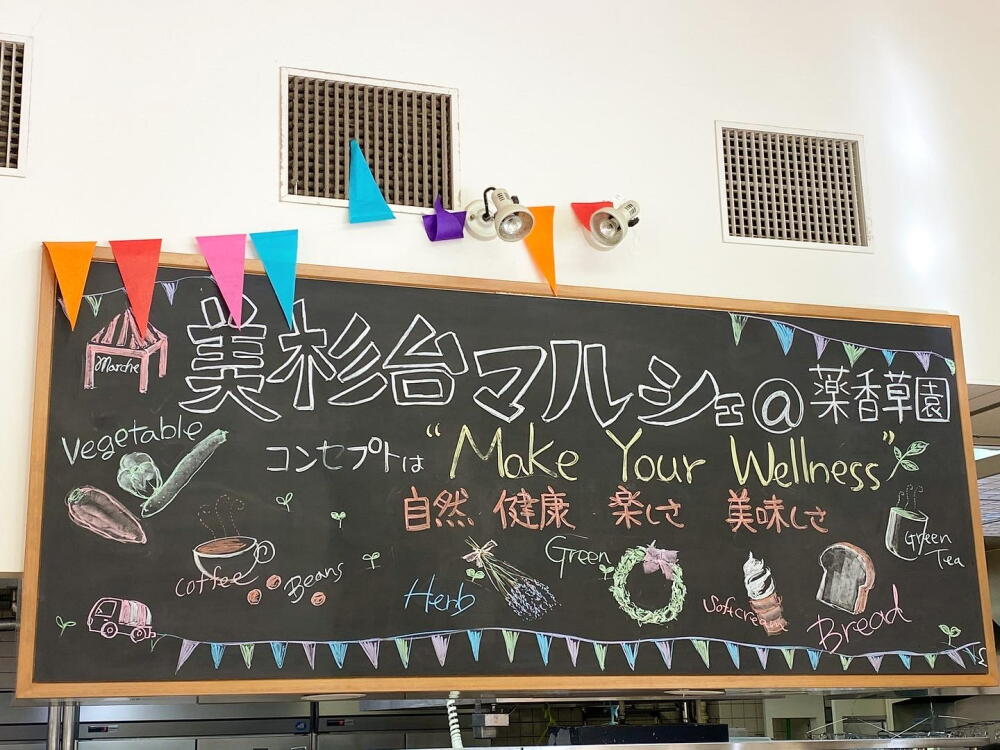 美杉台マルシェ@薬香草園
Marche
コンセプトは “Make Your Wellness”
自然 健康 楽しさ 美味しさ
Vegetable
Coffee
Beans
Herb
Green
Softcream
Bread
Green
Tea